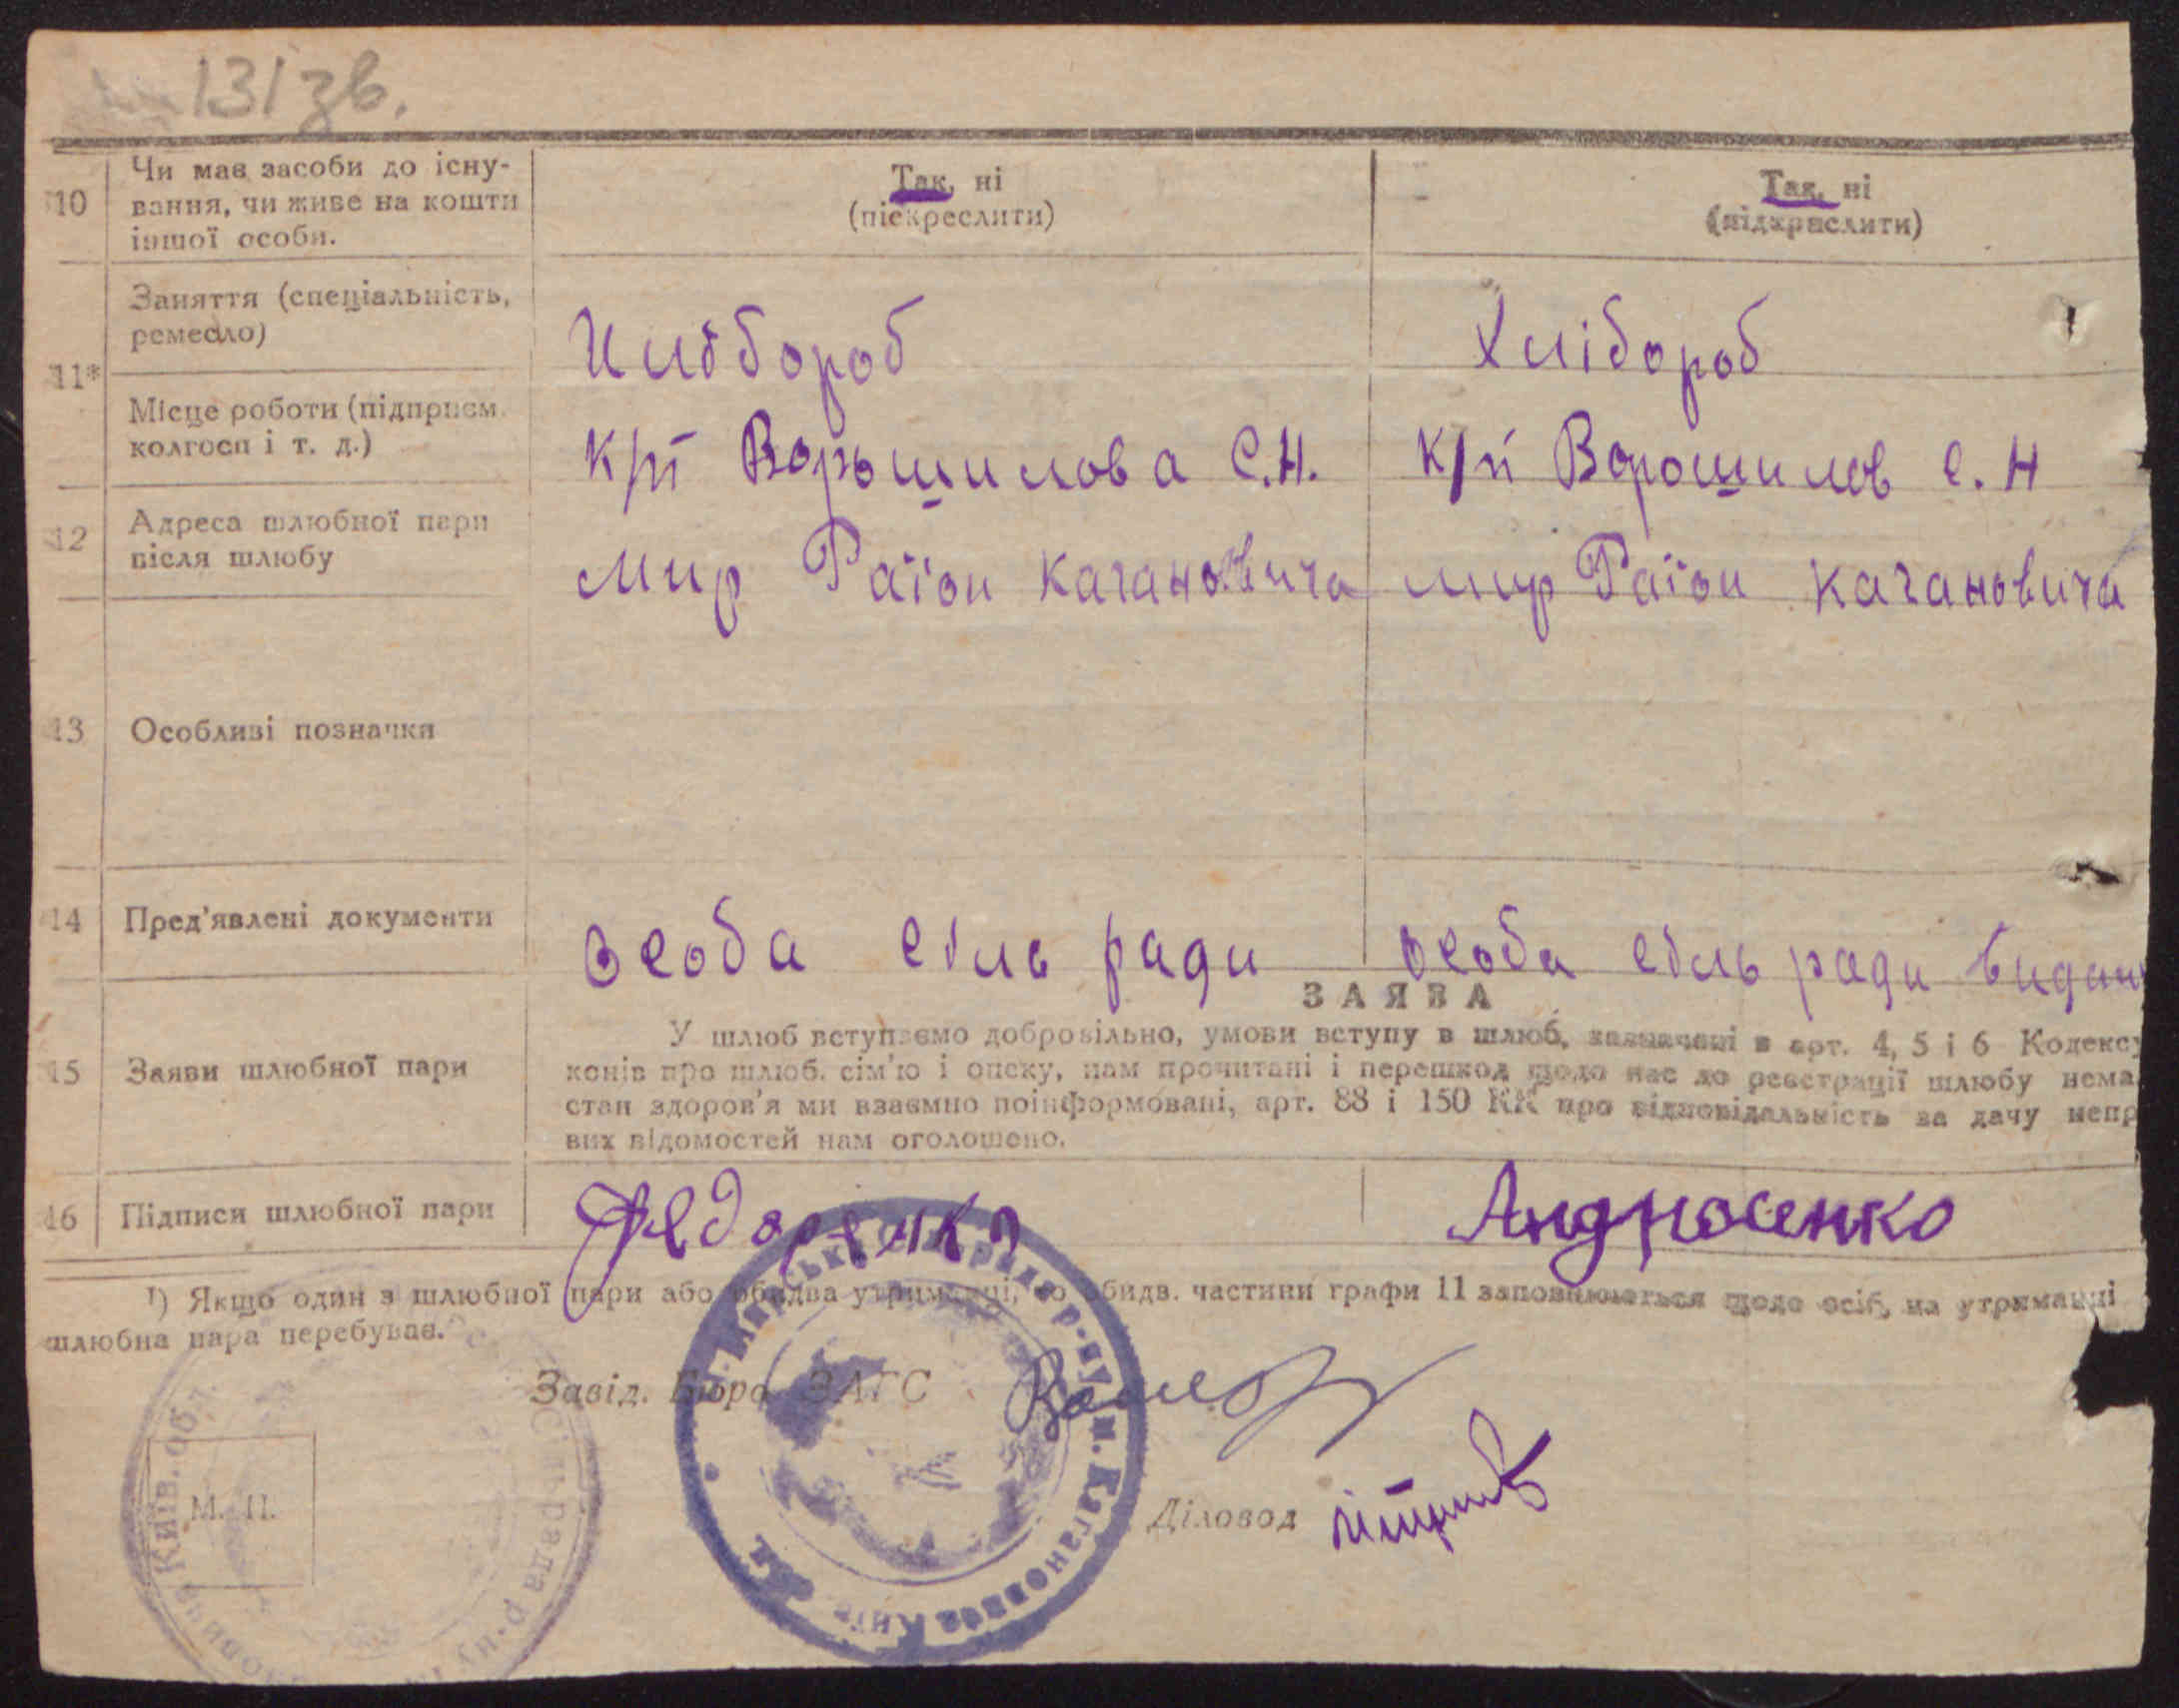 131 зв.
10
Чи має засоби до існу-
вання, чи живе на кошти
іншої особи.
Так, ні
(піскреслити)
Так, ні
(підкреслити)
11*
Заняття (спеціальність,
ремесло)
Хлібороб
Хлібороб
Місце роботи (підприєм.
колгосп і т. д.)
к/п Ворошилова С.Н.
к/п Ворошилов С.Н
12
Адреса шлюбної пари
після шлюбу
Мир Раїон Кагановича
мир Раїон Кагановича
13
Особливі позначки
14
Пред'явлені документи
особа сіль ради
особа сіль ради видан
ЗАЯВА
15
Заяви шлюбної пари
У шлюб вступаємо добровільно, умови вступу в шлюб, зазначені в арт. 4, 5 і 6 Кодексу
конів про шлюб. сім'ю і опску, нам прочитані і перешкод щодо нас до реєстрації шлюбу нема
стан здоров'я ми взаємно поінформовані, арт. 88 і 150 КК про відповідальність за дачу непр
вих відомостей нам оголошено.
16
Підписи шлюбної пари
Федоренко
Андросенко
1) Якщо один з шлюбної пари або обидва утриманці, то обидв. частини графи 11 заповнюються щодо осіб, на утриманні
шлюбна пара перебуває.
Завід. Бюро ЗАГС
М. П.
Діловод
Київ. обл.
Сільрада р-ну
р-ну ім. Кагановича Київ